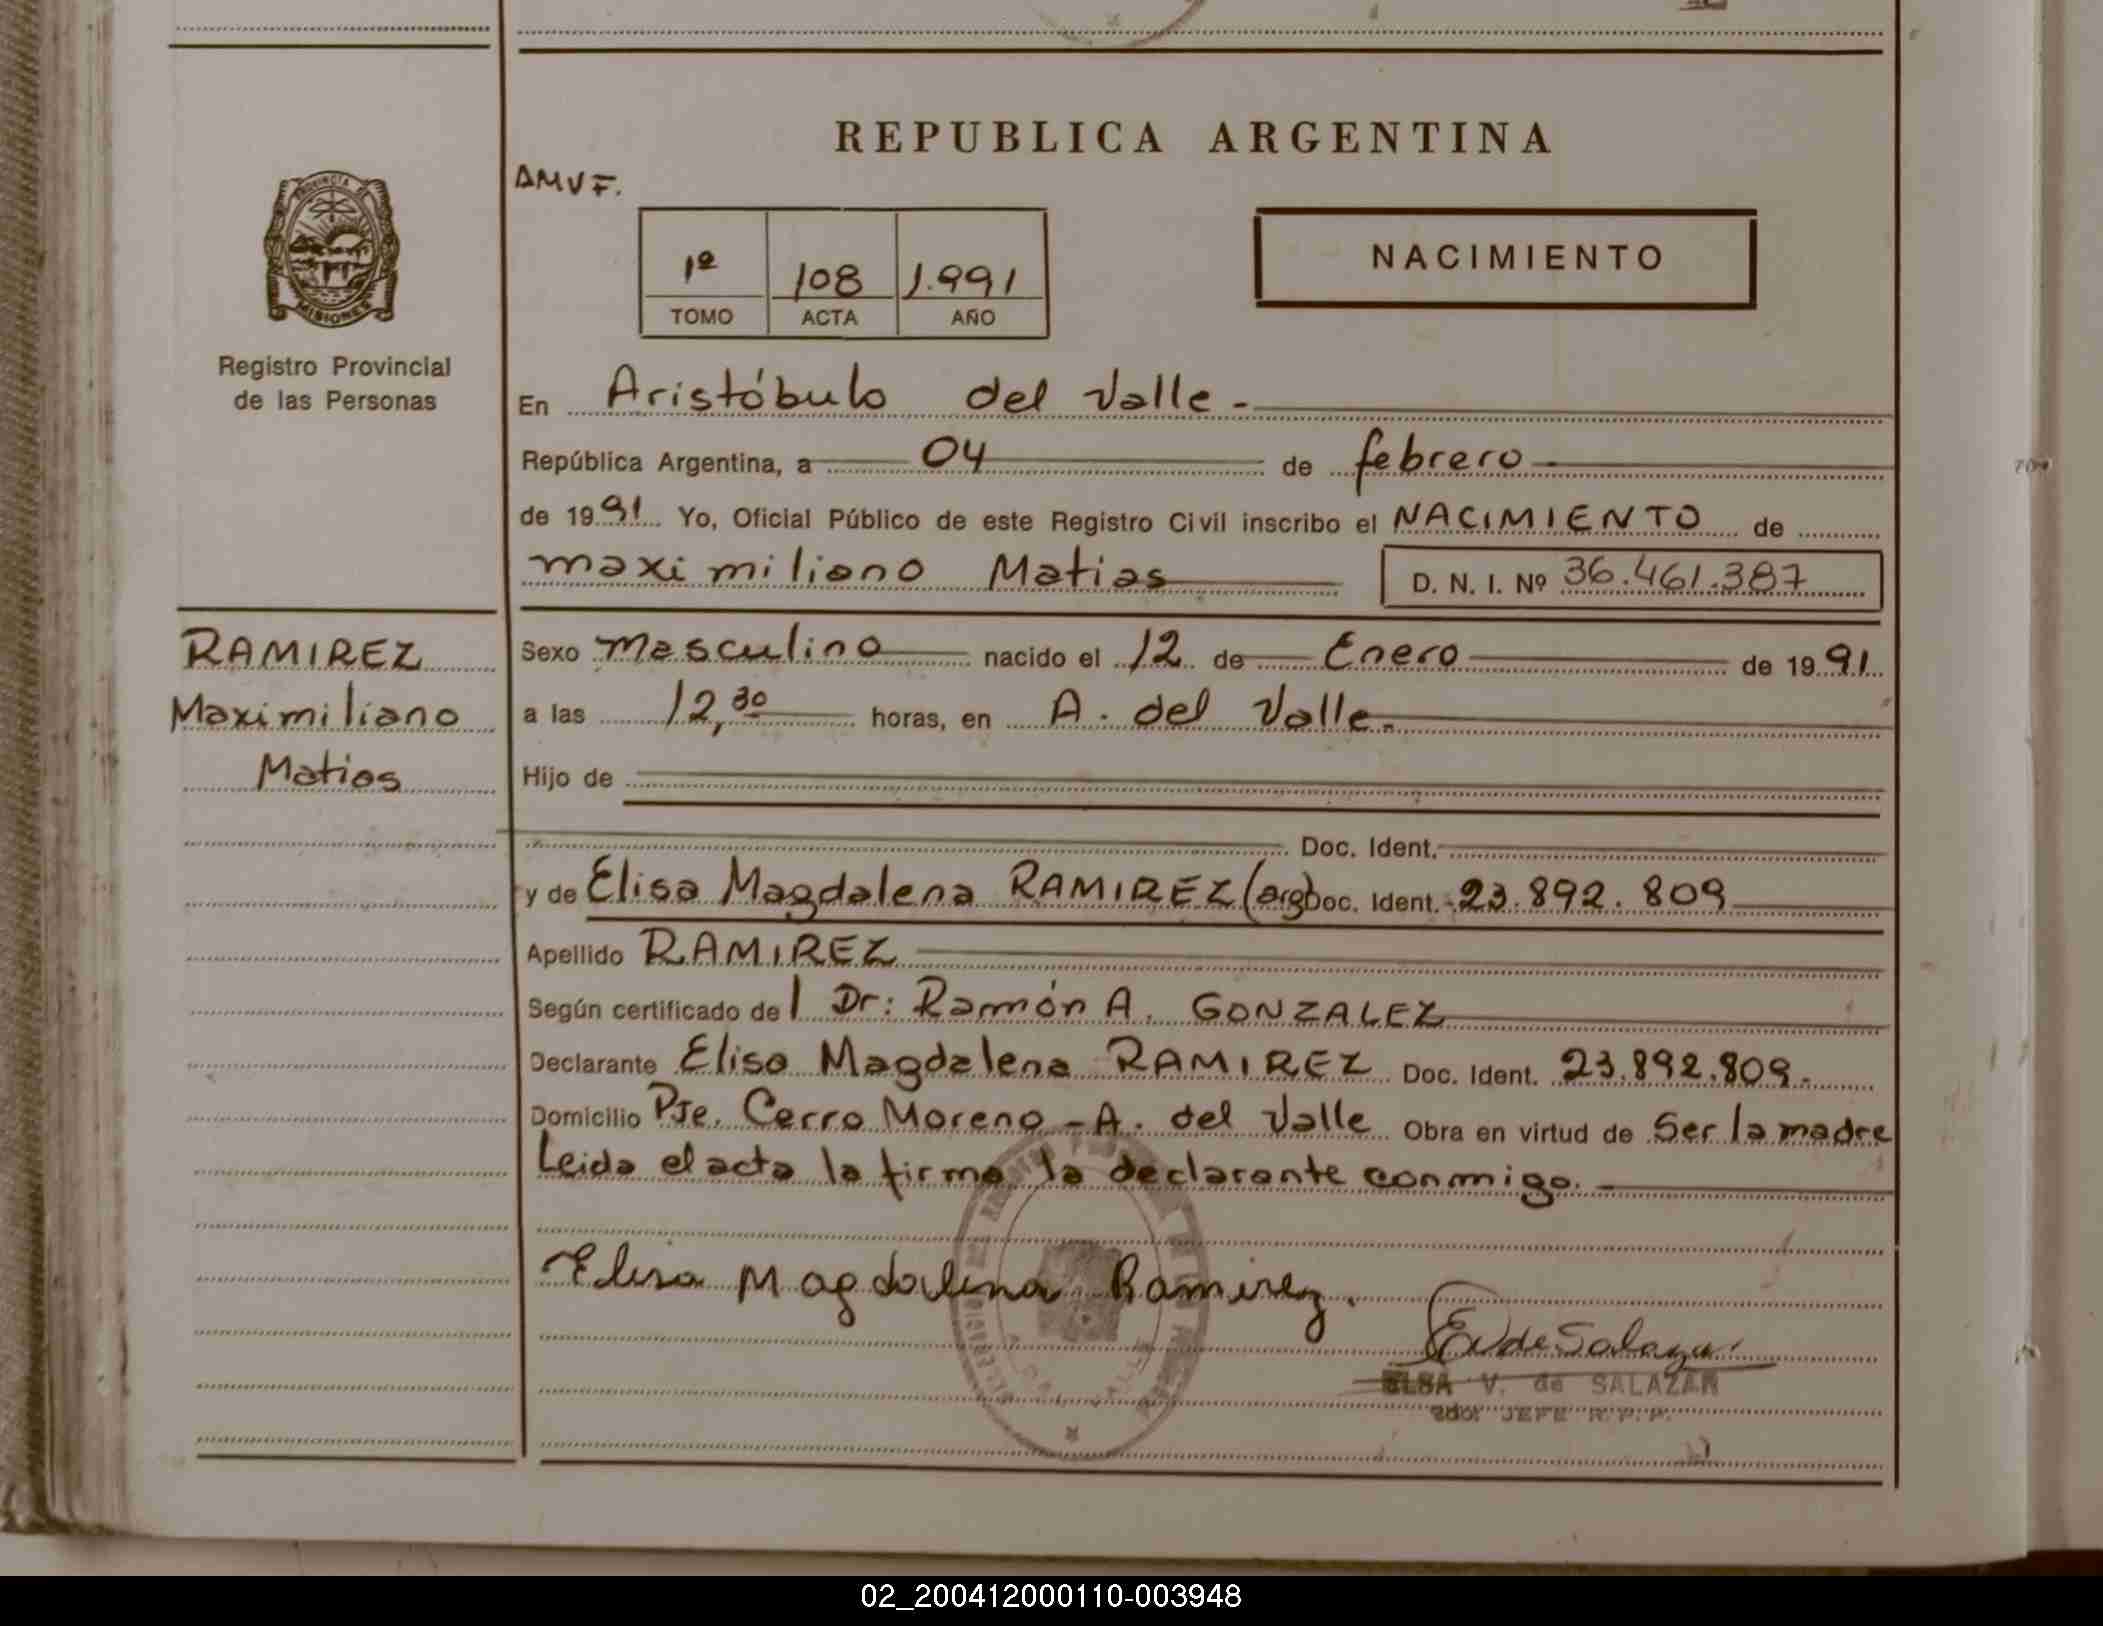 REPUBLICA ARGENTINA
AMVF.
1º 108 1.991
TOMO ACTA AÑO
NACIMIENTO
PROVINCIA DE
MISIONES
Registro Provincial
de las Personas
En Aristóbulo del Valle.-
República Argentina, a 04 de febrero.-
de 1991 Yo, Oficial Público de este Registro Civil inscribo el NACIMIENTO de
maximiliano Matias D. N. I. Nº 36.461.387
RAMIREZ
Maximiliano
Matias
Sexo masculino nacido el 12 de Enero de 1991
a las 12,30 horas, en A. del Valle.-
Hijo de
Doc. Ident.
y de Elisa Magdalena RAMIREZ (arg) Doc. Ident. 23.892.809
Apellido RAMIREZ
Según certificado del Dr: Ramón A. GONZALEZ
Declarante Elisa Magdalena RAMIREZ Doc. Ident. 23.892.809.
Domicilio Pje. Cerro Moreno - A. del Valle Obra en virtud de Ser la madre
Leida el acta la firma la declarante conmigo.
Elisa Magdalena Ramirez.
E V de Salazar
ELSA V. de SALAZAR
JEFE R.P.P.
02_200412000110-003948